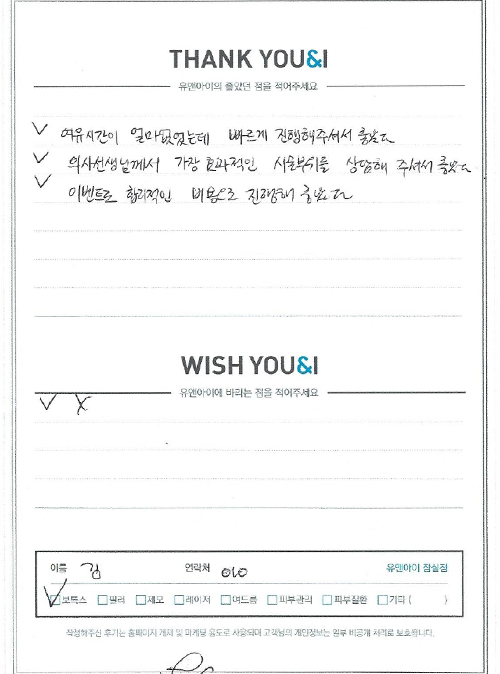 THANK YOU&I
유앤아이의 좋았던 점을 적어주세요
여유시간이 얼마없었는데 빠르게 진행해주셔서 좋았다
의사선생님께서 가장 효과적인 시술부위를 상담해 주셔서 좋았다
이벤트로 합리적인 비용으로 진행해 좋았다
WISH YOU&I
유앤아이에 바라는 점을 적어주세요
X
이름 김 연락처 010 유앤아이 잠실점
보톡스 필러 제모 레이저 여드름 피부관리 피부질환 기타 ( )
작성해주신 후기는 홈페이지 게재 및 마케팅 용도로 사용되며 고객님의 개인정보는 일부 비공개 처리로 보호됩니다.